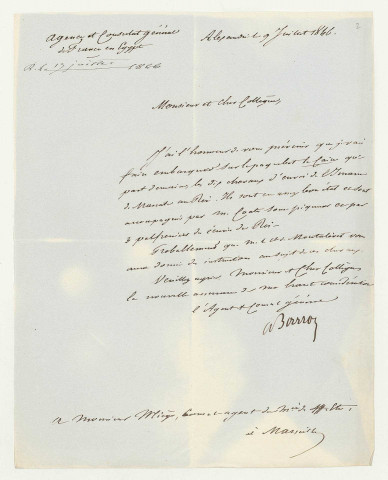 Agence et Consulat général
de France en Egypte
R. le 17 juillet 1846
Alexandrie le 9 Juillet 1846.
2
Monsieur et cher Collègue,
J'ai l'honneur de vous prévenir que j'ai
fait embarquer sur le paquebot le Caire qui
part demain les dix chevaux d'envoi de l'Imam
de Mascate au Roi. Ils sont en very bon état et sont
accompagnés par M. piqueur et par
3 palfreniers des écuries du Roi.
Probablement que M. le Cte Montalivet vous
aura donné des instructions au sujet de ces chevaux
Veuillez agréer Monsieur et Cher Collègue
la nouvelle assurance de ma haute considération
l'Agent et Consul Général
A Barrot
A Monsieur Miège, Consul agent du Min. des aff. étr.
à Marseille